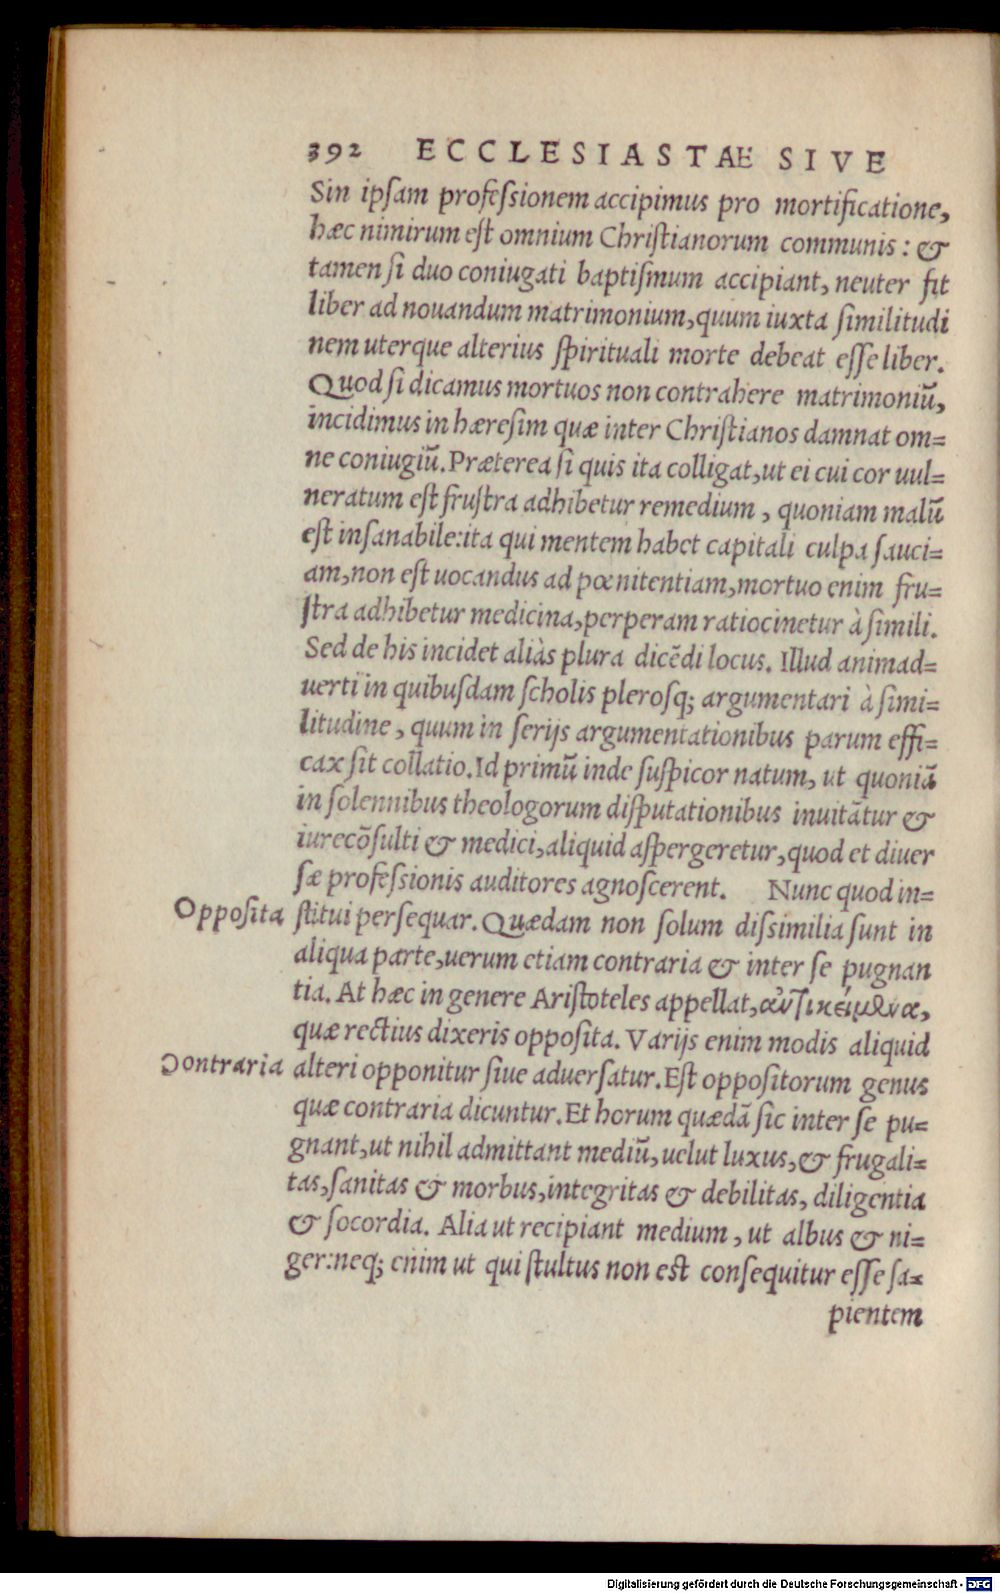 392 ECCLESIASTAE SIVE
Sin ipſam profeſsionem accipimus pro mortificatione,
hæc nimirum eſt omnium Chriſtianorum communis: &
tamen ſi duo coniugati baptiſmum accipiant, neuter fit
liber ad nouandum matrimonium, quum iuxta ſimilitudi
nem uterque alterius ſpirituali morte debeat eſſe liber.
Quod ſi dicamus mortuos non contrahere matrimoniũ,
incidimus in hæreſim quæ inter Chriſtianos damnat om=
ne coniugiũ. Præterea ſi quis ita colligat, ut ei cui cor uul=
neratum eſt fruſtra adhibetur remedium, quoniam malũ
eſt inſanabile: ita qui mentem habet capitali culpa ſauci=
am, non eſt uocandus ad pœnitentiam, mortuo enim fru=
ſtra adhibetur medicina, perperam ratiocinetur à ſimili.
Sed de his incidet aliàs plura dicẽdi locus. Illud animad=
uerti in quibuſdam ſcholis pleroſq; argumentari à ſimi=
litudine, quum in ſerijs argumentationibus parum effi=
cax ſit collatio. Id primũ inde ſuſpicor natum, ut quoniã
in ſolennibus theologorum diſputationibus inuitãtur &
iurecõſulti & medici, aliquid aſpergeretur, quod et diuer
ſæ profeſsionis auditores agnoſcerent. Nunc quod in=
Oppoſita ſtitui perſequar. Quædam non ſolum diſsimilia ſunt in
aliqua parte, uerum etiam contraria & inter ſe pugnan
tia. At hæc in genere Ariſtoteles appellat, ἀντικείμενα,
quæ rectius dixeris oppoſita. Varijs enim modis aliquid
Contraria alteri opponitur ſiue aduerſatur. Eſt oppoſitorum genus
quæ contraria dicuntur. Et horum quædã ſic inter ſe pu=
gnant, ut nihil admittant mediũ, uelut luxus, & frugali=
tas, ſanitas & morbus, integritas & debilitas, diligentia
& ſocordia. Alia ut recipiant medium, ut albus & ni=
ger: neq; enim ut qui ſtultus non est conſequitur eſſe ſa=
pientem
Digitalisierung gefördert durch die Deutsche Forschungsgemeinschaft - DFG